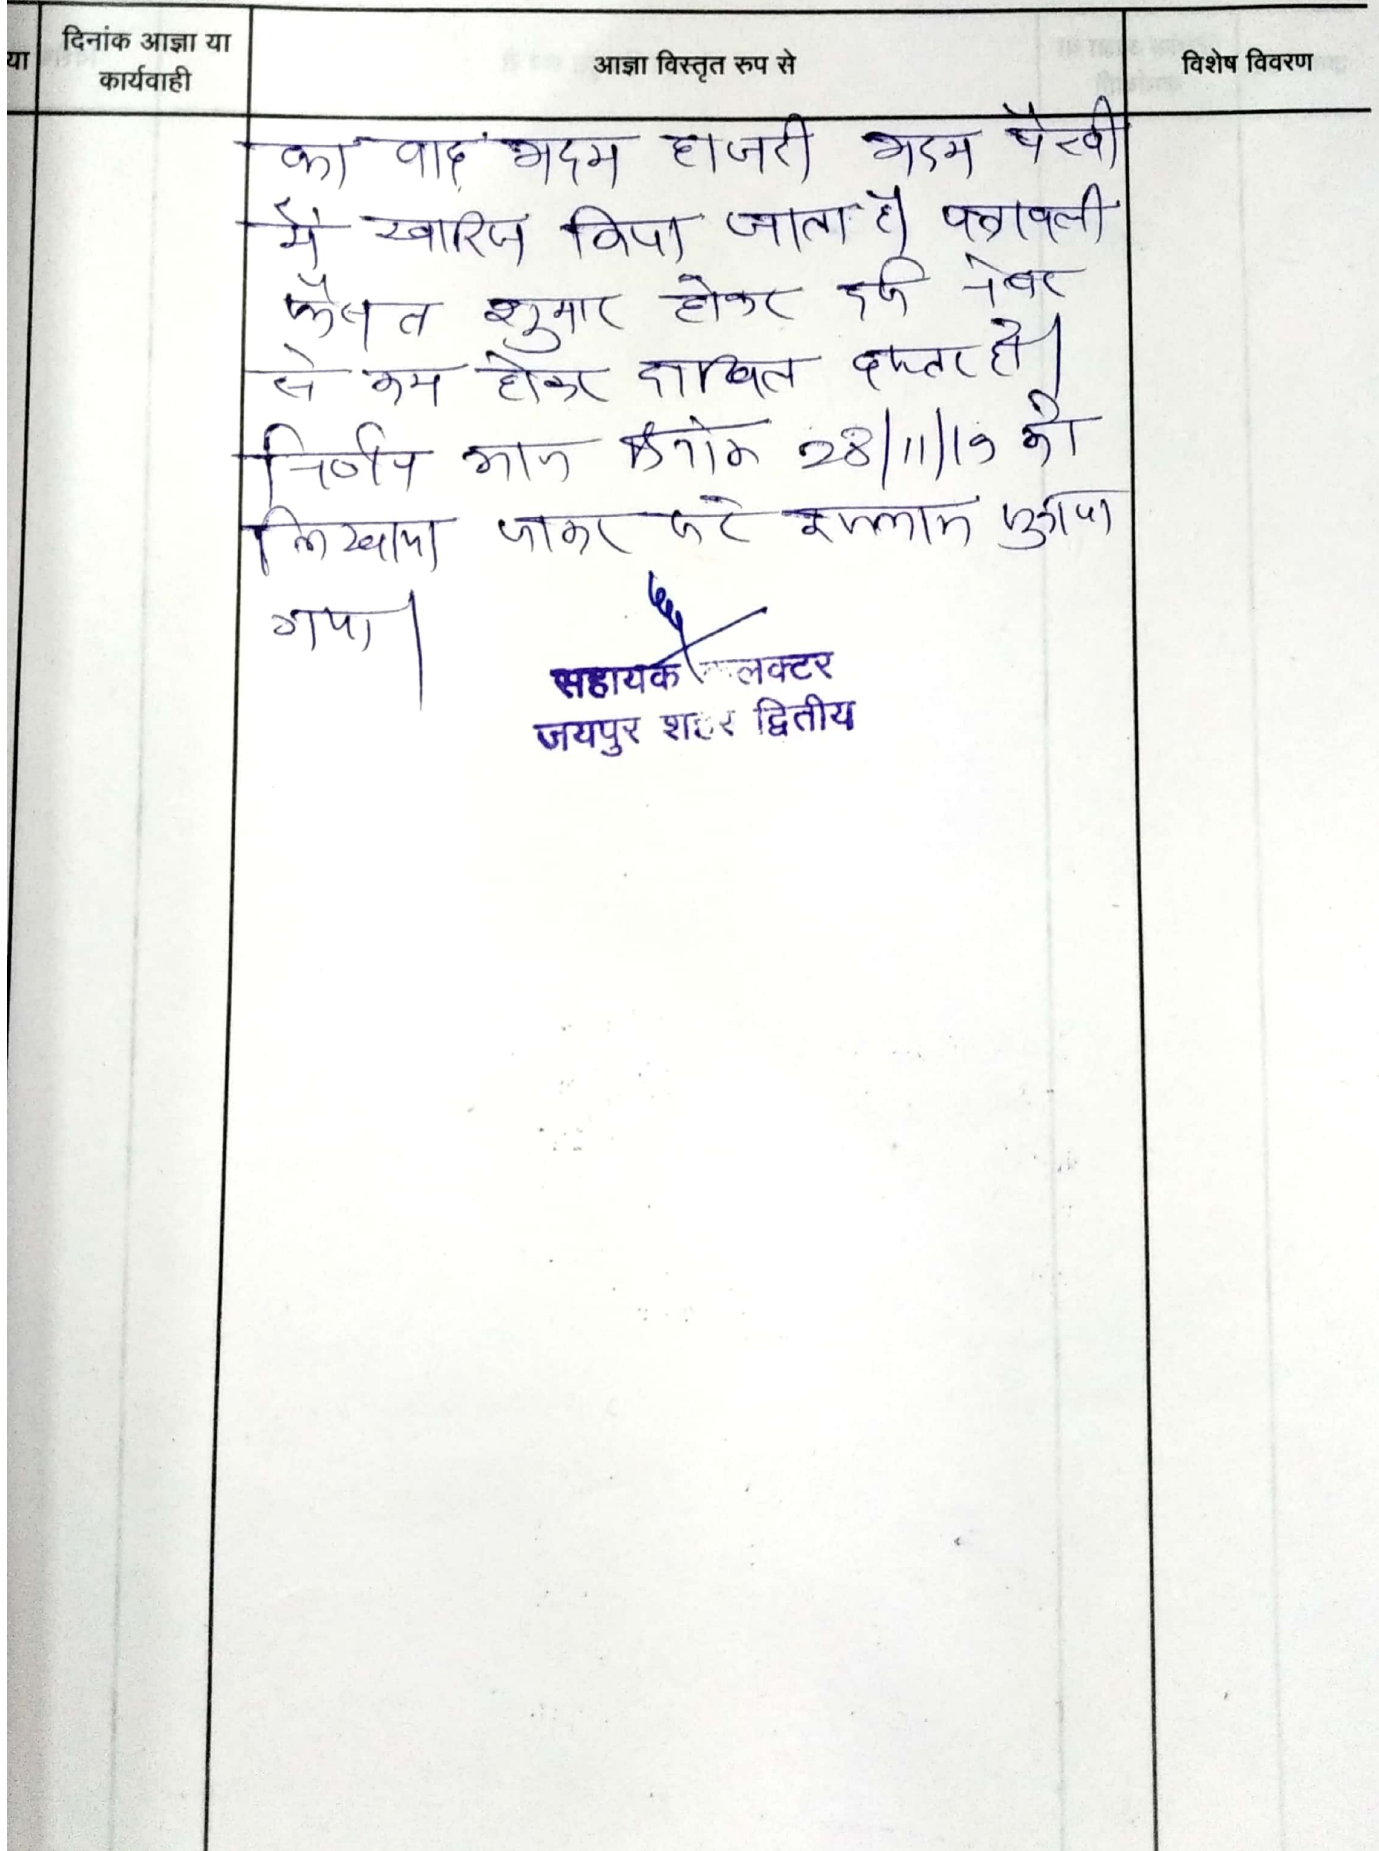 या
दिनांक आज्ञा या
कार्यवाही
आज्ञा विस्तृत रुप से
विशेष विवरण
का वाद अदम हाजरी अदम पैरवी
में खारिज किया जाता है। पत्रावली
फैसल शुमार होकर दर्ज नंबर
से कम होकर दाखिल दफ्तर हो।
निर्णय आज दिनांक 28/11/19 को
लिखाया जाकर सरे इजलास सुनाया
गया।
सहायक लक्टर
जयपुर शहर द्वितीय